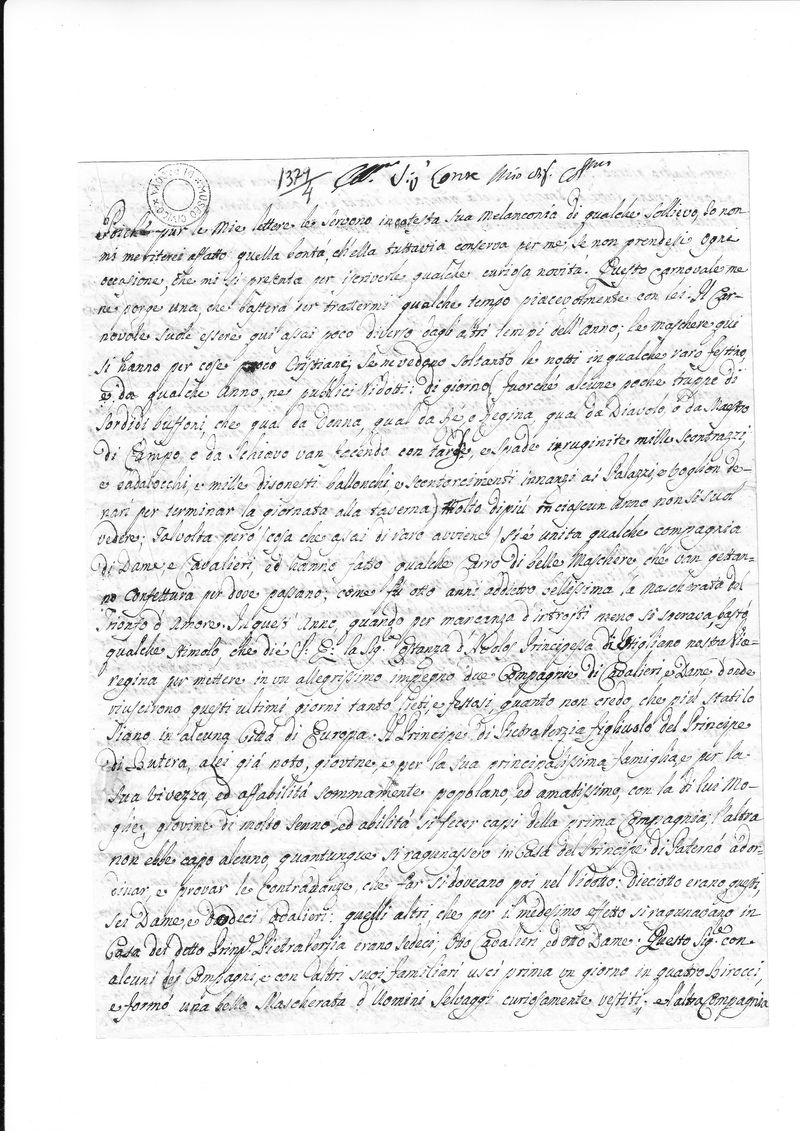 MUSEO CIVICO DI
1371/4 Sig. Conte Mio
Poiché pur le Mie lettere le servono in cotesta sua Melanconia di qualche sollievo, Io non
mi meriterei affatto quella bontá, ch'ella tuttavia conserva per me, se non prendessi ogni
occasione, che mi si presenta per iscriverle qualche curiosa novitá. Questo Carnovale me
ne porge una, che basterá per trattermi qualche tempo piacevolmente con lei. Il Car-
novale suole essere qui assai poco diverso dagl'altri tempi dell'Anno; le maschere qui
si hanno per cose poco Cristiane; se ne vedono soltanto le notti in qualche raro festino,
e da qualche Anno, nei publici Ridotti: di giorno (fuorché alcune poche truppe di
sordidi buffoni, che qual da Donna, qual da Re, o Regina, qual da Diavolo, o da Mastro
di Campo, o da Schiavo van facendo con targhe, e spade irruginite mille
e badalocchi, e mille disonesti ballonchi, e scontorcimenti innanzi ai Palazzi, e voglion de-
nari per terminar la giornata alla taverna) Molto di piú in ciascun Anno non si suol
vedere; Talvolta peró (cosa che assai di raro avviene) si é unita qualche compagnia
di Dame, e Cavalieri, ed hanno fatto qualche Carro di belle Maschere, che van gettan-
no Confettura per dove passano; come fu otto anni addietro bellissima la Mascherata del
Trionfo d'Amore. In quest'Anno, quando per mancanza d'introiti meno si sperava, bastó
qualche stimolo, che dié S. E. la Sig.ra Costanza Principessa di Stigliano nostra Vice-
regina per mettere in un allegrissimo impegno due Compagnie di Cavalieri, e Dame d'onde
riuscirono questi ultimi giorni tanto lieti, e festosi, quanto non credo, che piú stati lo
siano in alcuna Cittá di Europa. Il Principe di Pietraperzia figliuolo del Principe
di Butera, a lei giá noto, giovine, e per la sua principalissima famiglia, e per la
sua vivezza, ed affabilitá sommamente popolano, ed amatissimo, con la di lui Mo-
glie, giovine di molto senno, ed abilitá si fecer capi della prima Compagnia; l'altra
non ebbe capo alcuno, quantunque si ragunassero in Casa del Principe di Paternó ad or-
dinar, e provar le Contradanze, che far si doveano poi nel Ridotto. Dieciotto erano questi,
sei Dame, e Dodeci Cavalieri: quelli altri, che per il medesimo effetto si ragunavano in
Casa del detto Princ.e Pietraperzia erano sedeci, Otto Cavalieri, ed otto Dame. Questo Sig.e con
alcuni dei Compagni, e con altri suoi familiari uscí prima un giorno in quattro birocci,
e formó una bella Mascherata d'Uomini Selvaggi curiosamente vestiti; e l'altra Compagnia